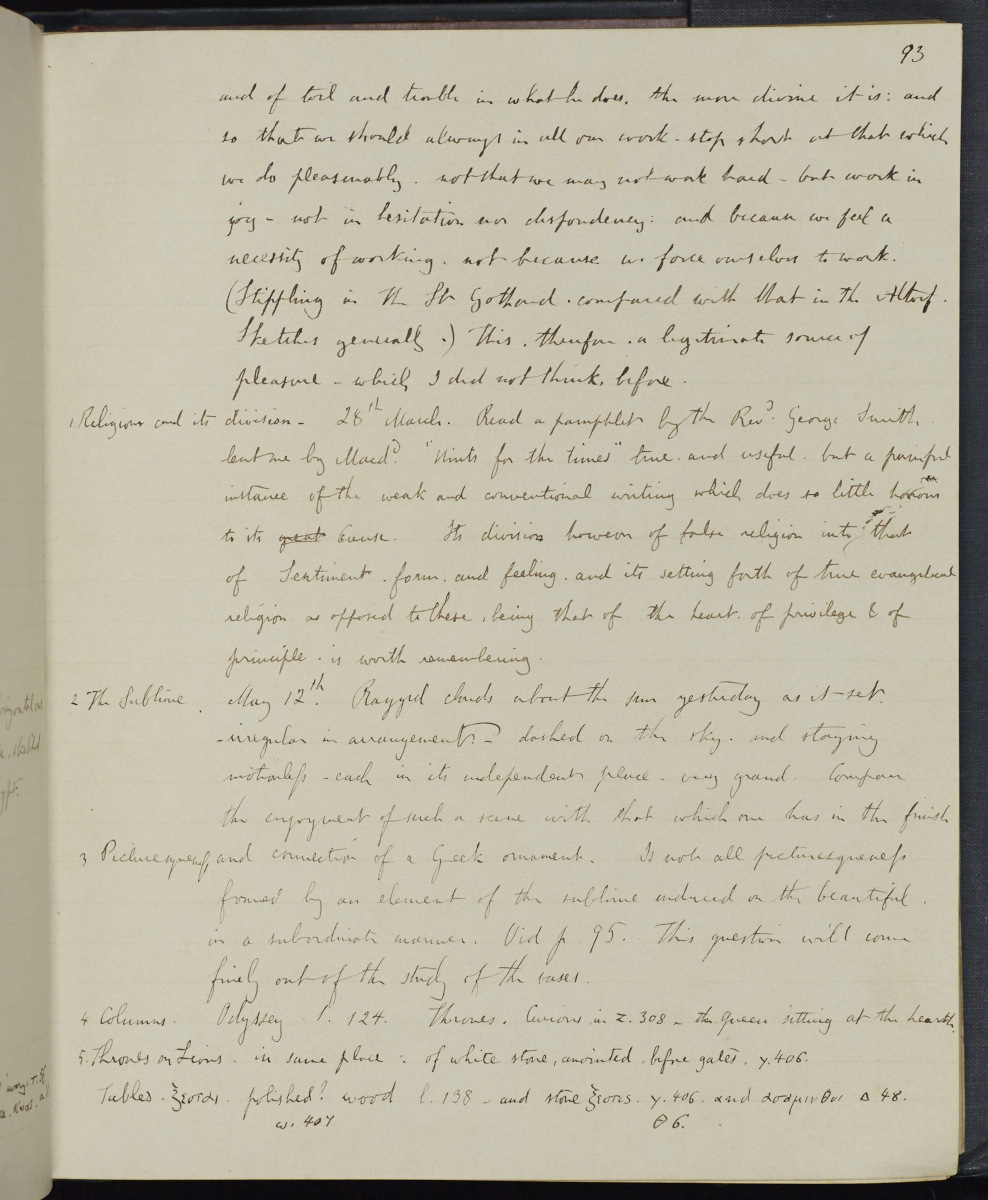 93
and of toil and trouble in what he does. the more divine it is: and
so that we should always in all our work - stop short at that which
we do pleasurably. not that we may not work hard - but work in
joy - not in hesitation nor despondency: and because we feel a
necessity of working. not because we force ourselves to work.
(Stippling in the St Gothard. compared with that in the Altorf.
Sketches generally.) This. therefore. a legitimate source of
pleasure - which I did not think, before.
1 Religion and its division - 28th March. Read a pamphlet by the Revd. George Smith.
lent me by Macd? "Hints for the times" true. and useful. but a painful
instance of the weak and conventional writing which does so little
to its great cause. Its division however of false religion into that
of Sentiment. form. and feeling. and its setting forth of true evangelical
religion as opposed to these, being that of the heart. of privilege & of
principle. is worth remembering.
2 The Sublime. May 12th. Ragged clouds about the sun yesterday as it set.
- irregular in arrangement - dashed on the sky. and staying
motionless - each in its independent place - very grand. Compare
the enjoyment of such a scene with that which one has in the finish
3 Picturesqueness and connection of a Greek ornament. Is not all picturesqueness
formed by an element of the sublime induced on the beautiful.
in a subordinate manner. Vid p 95. This question will come
finely out of the study of the vases.
4 Columns. Odyssey. 1. 124. Thrones. Curious, in Z. 308 - the Queen sitting at the hearth.
5. Thrones or Lions. in same place: of white stone, anointed, before gates. γ. 406.
Tables. ξεσται. polished? wood l. 138 - and stone ξεστοις. γ. 406. and ασαμινθοι Δ 48.
ω. 407 θ 6.